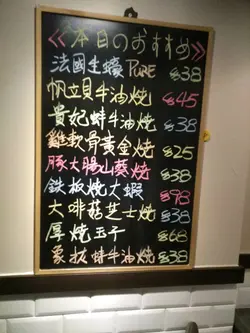 ≪本日のおすすめ≫
法國生蠔 PURE $38
帆立貝牛油燒 $45
貴妃蚌牛油燒 $38
雞軟骨黃金燒 $25
豚大腸山葵燒 $38
鉄板燒大蝦 $98
大啡菇芝士燒 $38
厚燒玉子 $68
象拔蚌牛油燒 $38